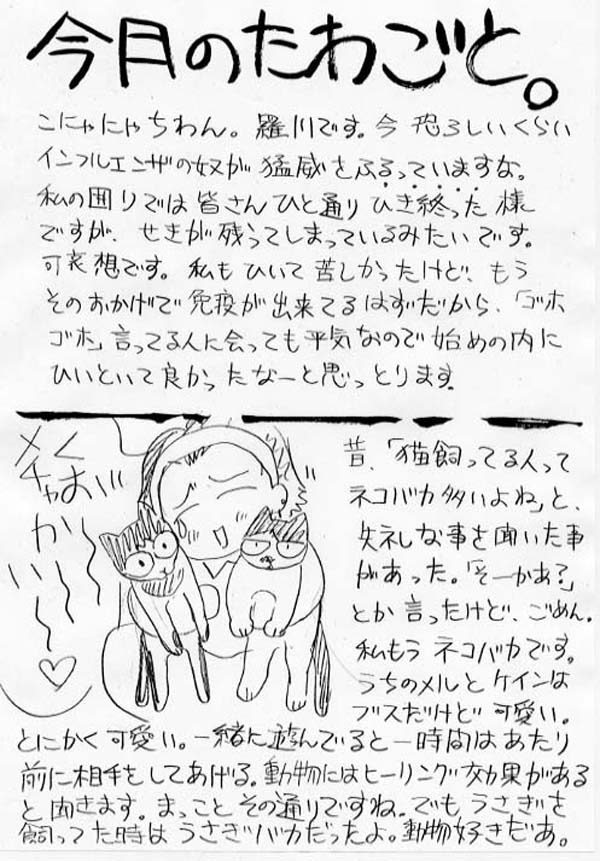 今月のたわごと。
こにゃにゃちわん。羅川です。今 恐ろしいくらい
インフルエンザの奴が猛威をふるっていますな。
私の囲りでは皆さんひと通り ひき終った 様
ですが、せきが残ってしまっているみたいです。
可哀想です。私もひいて苦しかったけど、もう
そのおかげで免疫が出来てるはずだから、「ゴホ
ゴホ」言ってる人に会っても平気なので始めの内に
ひいといて良かったなーと思っとります。
メル
チャおぷ
かー
いいー
♡
昔、「猫飼ってる人って
ネコバカ多いよね」と、
失ネしな事を聞いた事
があった。「そーかあ?」
とか言ったけど、ごめん。
私もう ネコバカです。
うちのメルと ケインは
ブスだけど 可愛い。
とにかく可愛い。一緒に遊んでいると一時間はあたり
前に相手をしてあげる。動物にはヒーリング効果がある
と聞きます。まっこと その通りですね。でも うさぎを
飼ってた時は うさぎバカだったよ。動物好きだあ。